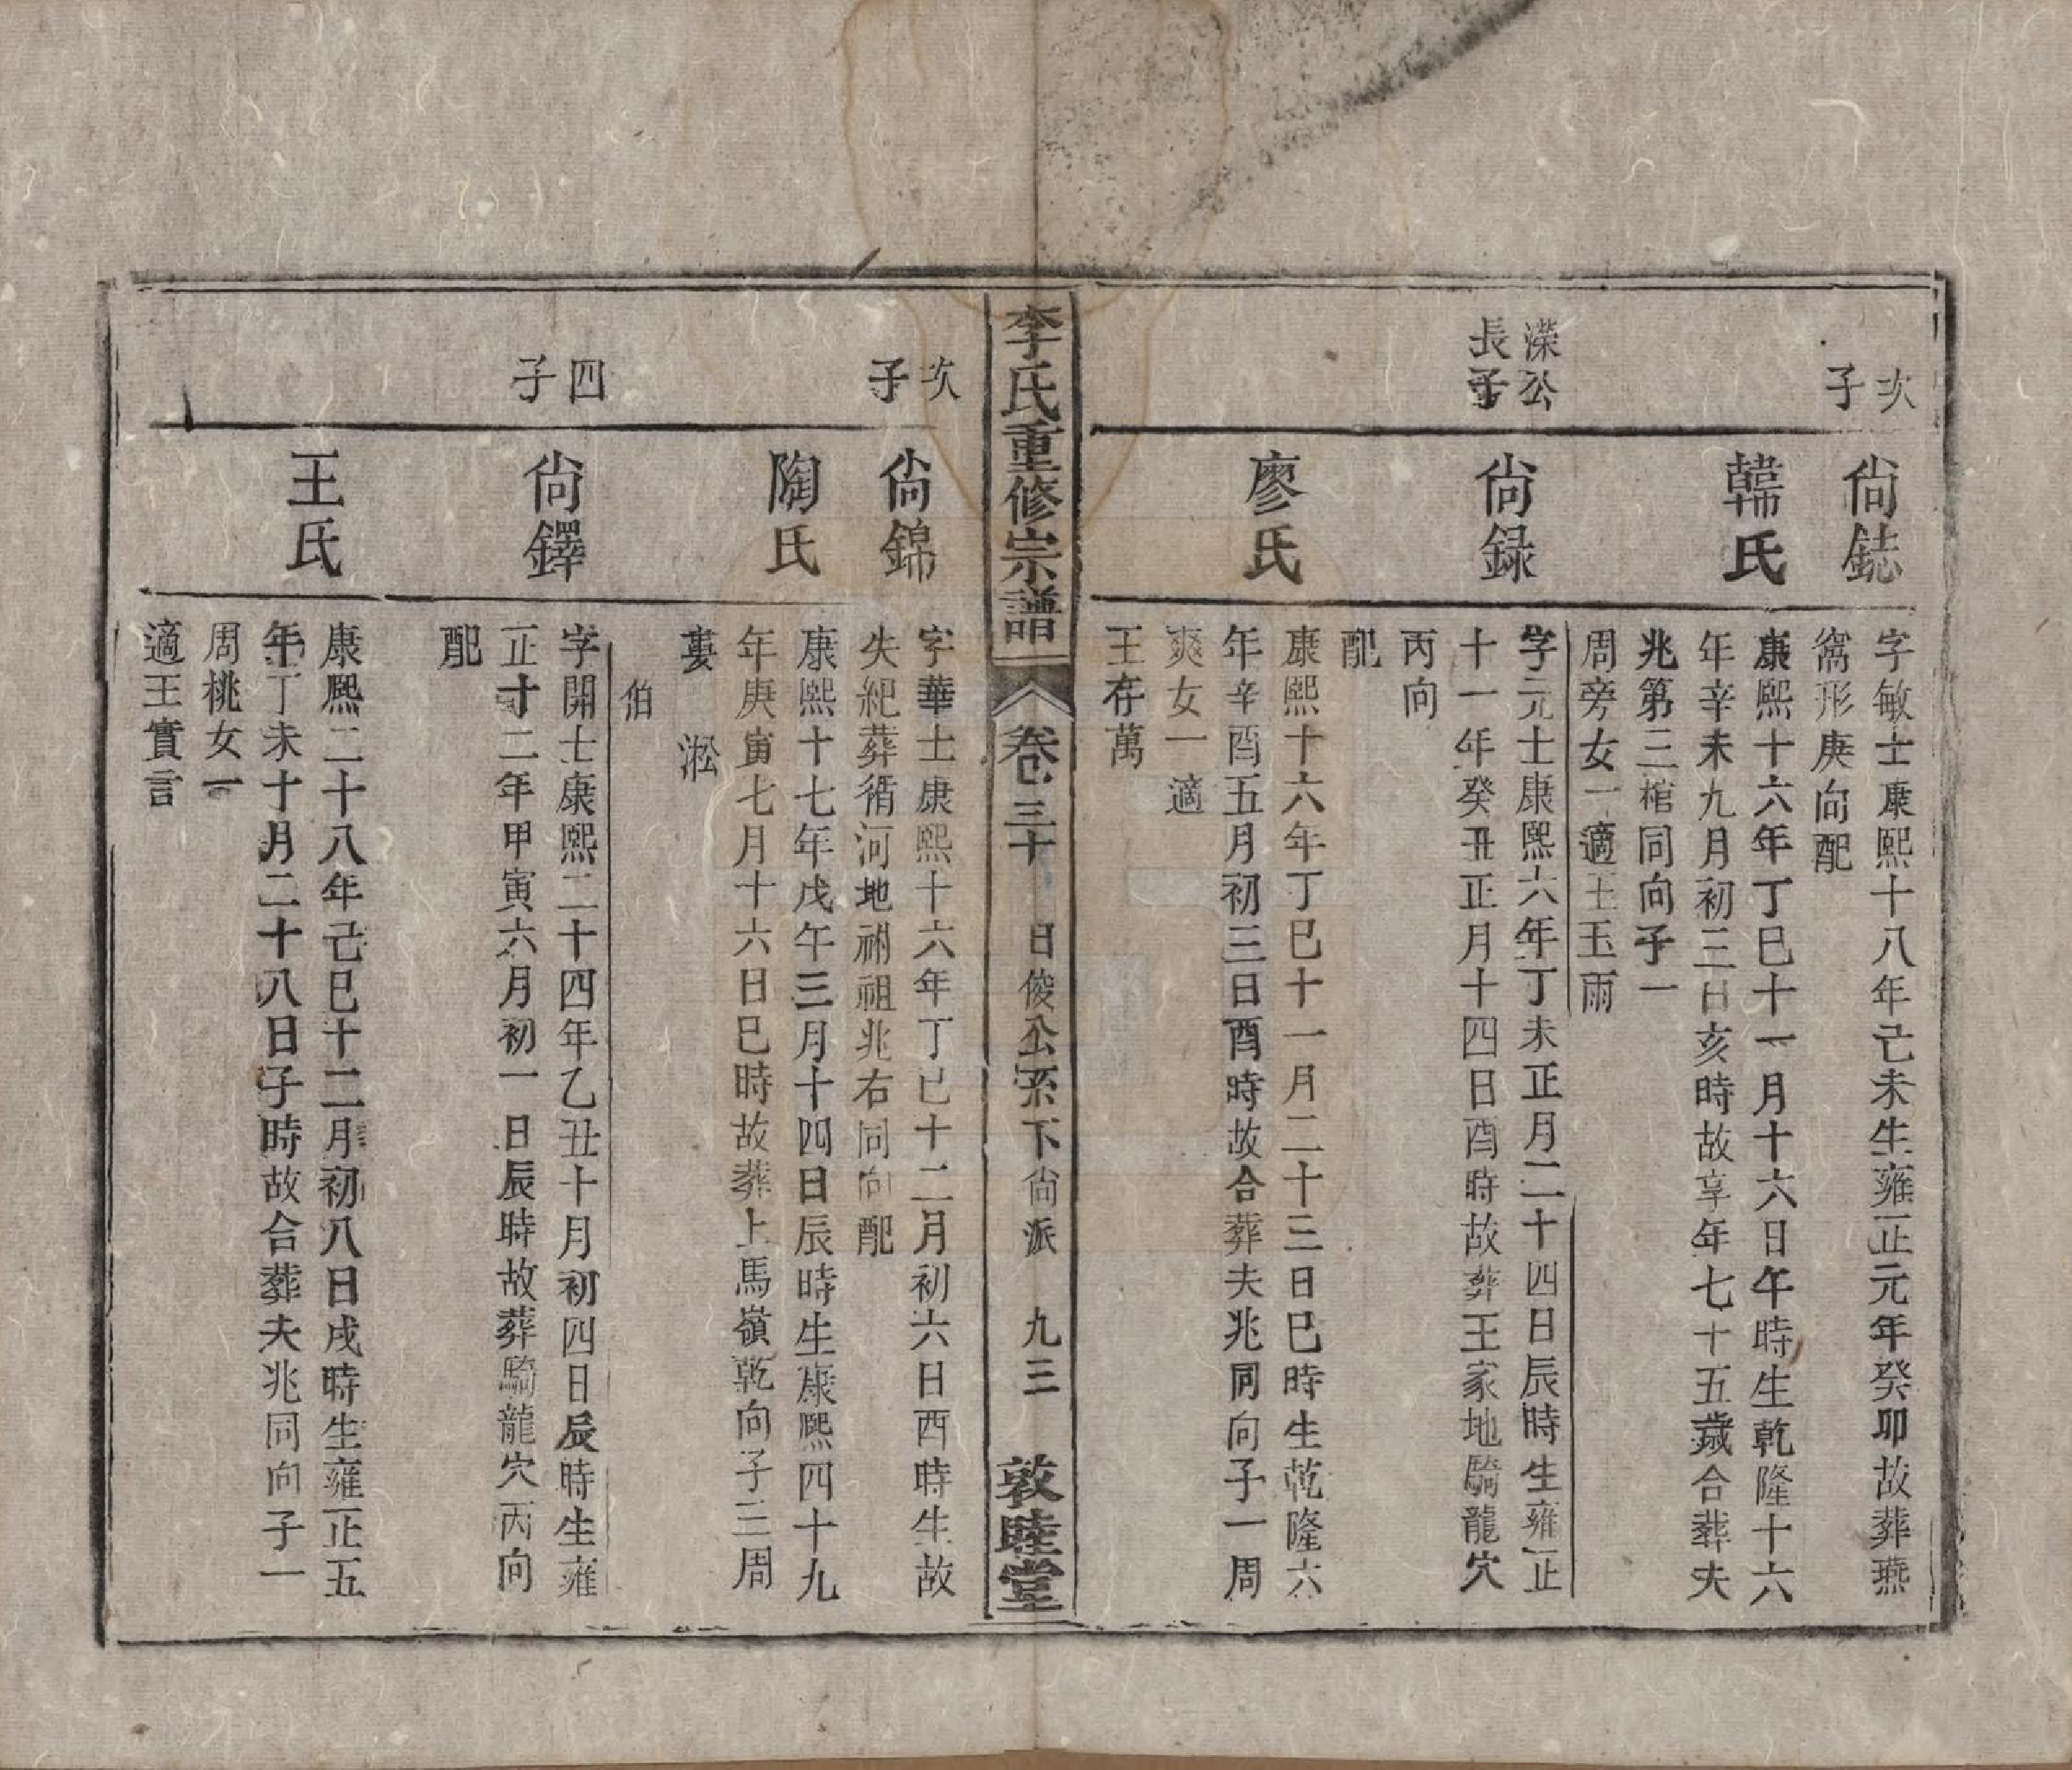 次
子
尙鋕
字敏士康熙十八年己未生雍正元年癸卯故葬燕
窩形庚向配
韓氏
康熙十六年丁巳十一月十六日午時生乾隆十六
年辛未九月初三日亥時故享年七十五歲合葬夫
兆第三棺同向子一
周旁女一適王玉雨
濚公
長子
尙録
字元士康熙六年丁未正月二十四日辰時生雍正
十一年癸丑正月十四日酉時故葬王家地騎龍穴
丙向
配
廖氏
康熙十六年丁巳十一月二十三日巳時生乾隆六
年辛酉五月初三日酉時故合葬夫兆同向子一周
爽女一適
王存萬
李氏重修宗譜
卷三十
日俊公系下尙派
九三
敦睦堂
次
子
尙錦
字華士康熙十六年丁巳十二月初六日酉時生故
失紀葬循河地祔祖兆右同向配
陶氏
康熙十七年戊午三月十四日辰時生康熙四十九
年庚寅七月十六日巳時故葬上馬嶺乾向子三周
婁 淞
伯
四
子
尙鐸
字開士康熙二十四年乙丑十月初四日辰時生雍
正十二年甲寅六月初一日辰時故葬騎龍穴丙向
配
王氏
康熙二十八年己巳十二月初八日戌時生雍正五
年丁未十月二十八日子時故合葬夫兆同向子一
周桃女一
適王實言